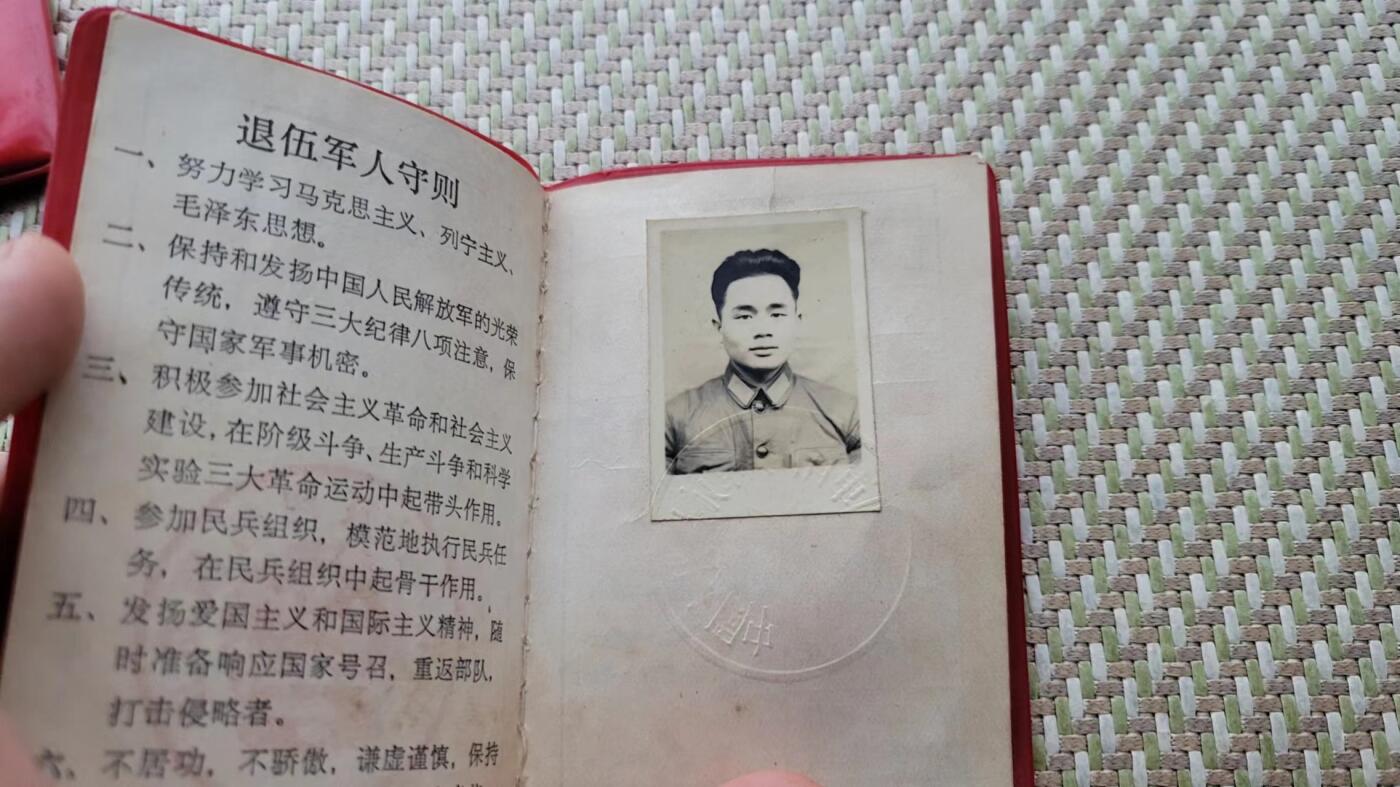 退伍军人守则
一、努力学习马克思主义、列宁主义、
毛泽东思想。
二、保持和发扬中国人民解放军的光荣
传统，遵守三大纪律八项注意，保
守国家军事机密。
三、积极参加社会主义革命和社会主义
建设，在阶级斗争、生产斗争和科学
实验三大革命运动中起带头作用。
四、参加民兵组织，模范地执行民兵任
务，在民兵组织中起骨干作用。
五、发扬爱国主义和国际主义精神，随
时准备响应国家号召，重返部队，
打击侵略者。
六、不居功，不骄傲，谦虚谨慎，保持
中国